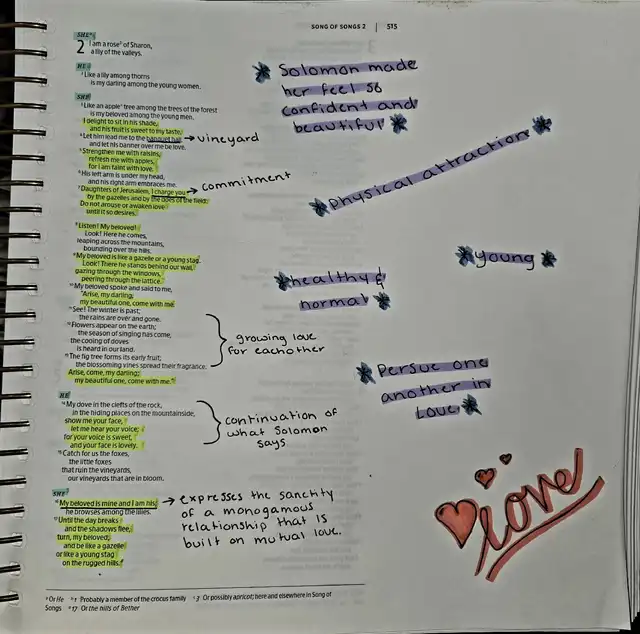 SONG OF SONGS 2 | 515
SHE
2 I am a rose of Sharon,
a lily of the valleys.
HE
2 Like a lily among thorns
is my darling among the young women.
SHE
3 Like an apple tree among the trees of the forest
is my beloved among the young men.
I delight to sit in his shade,
and his fruit is sweet to my taste.
4 Let him lead me to the banquet hall, → vineyard
and let his banner over me be love.
5 Strengthen me with raisins,
refresh me with apples,
for I am faint with love.
6 His left arm is under my head,
and his right arm embraces me.
7 Daughters of Jerusalem, I charge you → commitment
by the gazelles and by the does of the field:
Do not arouse or awaken love
until it so desires.
8 Listen! My beloved!
Look! Here he comes,
leaping across the mountains,
bounding over the hills.
9 My beloved is like a gazelle or a young stag.
Look! There he stands behind our wall,
gazing through the windows,
peering through the lattice.
10 My beloved spoke and said to me,
"Arise, my darling,
my beautiful one, come with me.
11 See! The winter is past;
the rains are over and gone.
12 Flowers appear on the earth;
the season of singing has come,
the cooing of doves
is heard in our land.
13 The fig tree forms its early fruit;
the blossoming vines spread their fragrance.
Arise, come, my darling;
my beautiful one, come with me."
growing love
for eachother
HE
14 My dove in the clefts of the rock,
in the hiding places on the mountainside,
show me your face,
let me hear your voice;
for your voice is sweet,
and your face is lovely.
15 Catch for us the foxes,
the little foxes
that ruin the vineyards,
our vineyards that are in bloom.
continuation of
what Solomon
says
SHE
16 My beloved is mine and I am his;
he browses among the lilies.
17 Until the day breaks
and the shadows flee,
turn, my beloved,
and be like a gazelle
or like a young stag
on the rugged hills.
→ expresses the sanctity
of a monogamous
relationship that is
built on mutual love.
Solomon made
her feel so
confident and
beautiful
physical attraction
young
healthy &
normal
Persue one
another in
Love
love
Or He 1 Probably a member of the crocus family 3 Or possibly apricot; here and elsewhere in Song of
Songs 17 Or the hills of Bether